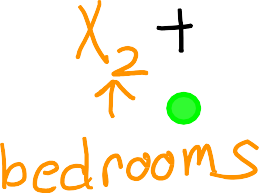 X₂ +
↑
bedrooms